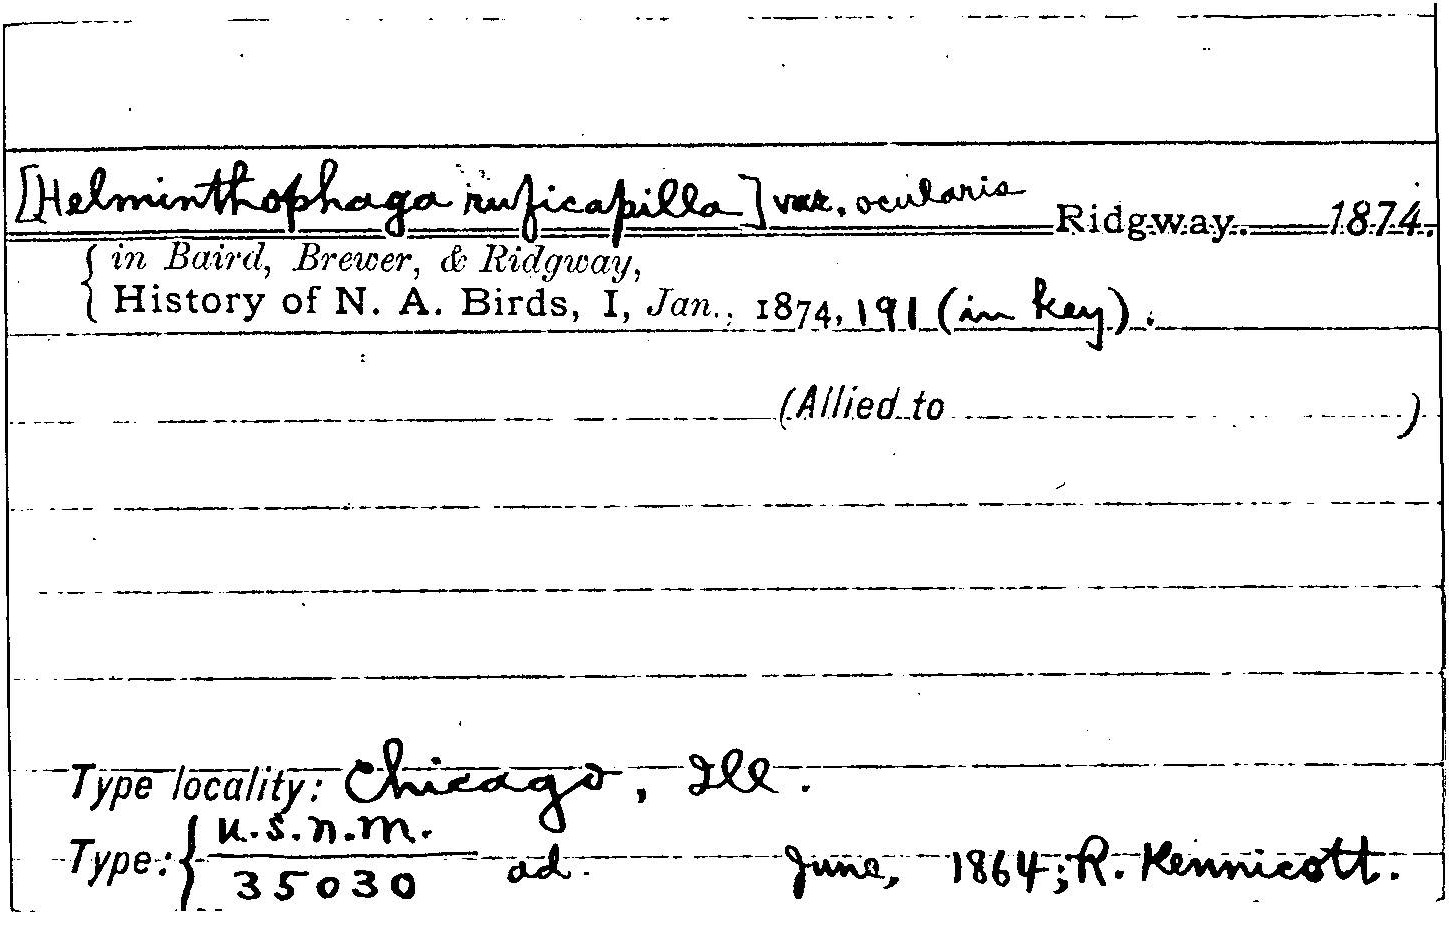 [Helminthophaga ruficapilla] var. ocularis Ridgway. 1874.
in Baird, Brewer, & Ridgway,
History of N. A. Birds, I, Jan., 1874, 191 (in key).
(Allied to )
Type locality: Chicago, Ill.
Type: { U.S.N.M.
35030 ad. June, 1864; R. Kennicott.